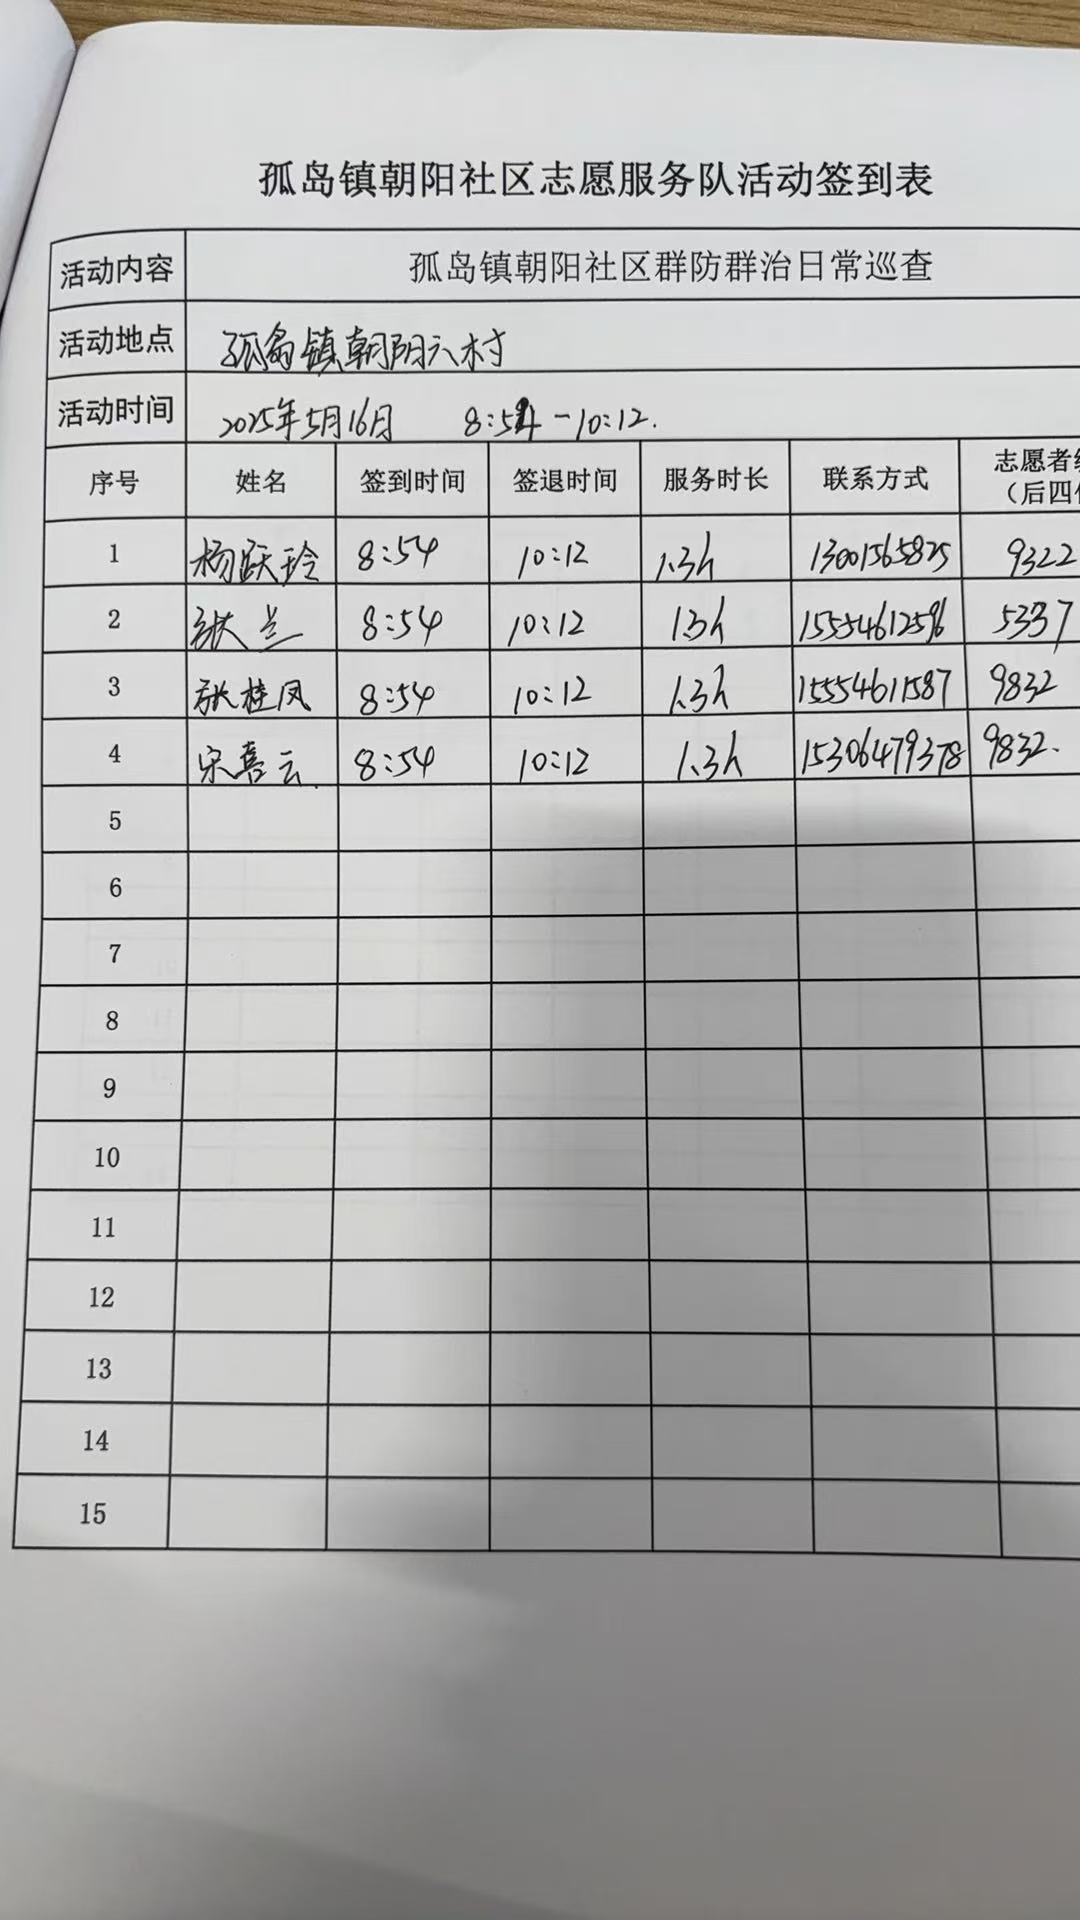 孤岛镇朝阳社区志愿服务队活动签到表
活动内容 孤岛镇朝阳社区群防群治日常巡查
活动地点 孤岛镇朝阳六村
活动时间 2025年5月16日 8:54-10:12.
序号 姓名 签到时间 签退时间 服务时长 联系方式 志愿者
(后四
1 杨跃玲 8:54 10:12 1.3h 13001565825 9322
2 张兰 8:54 10:12 1.3h 15554612596 5337
3 张桂凤 8:54 10:12 1.3h 15554611587 9832
4 宋喜云 8:54 10:12 1.3h 15306479378 9832.
5
6
7
8
9
10
11
12
13
14
15